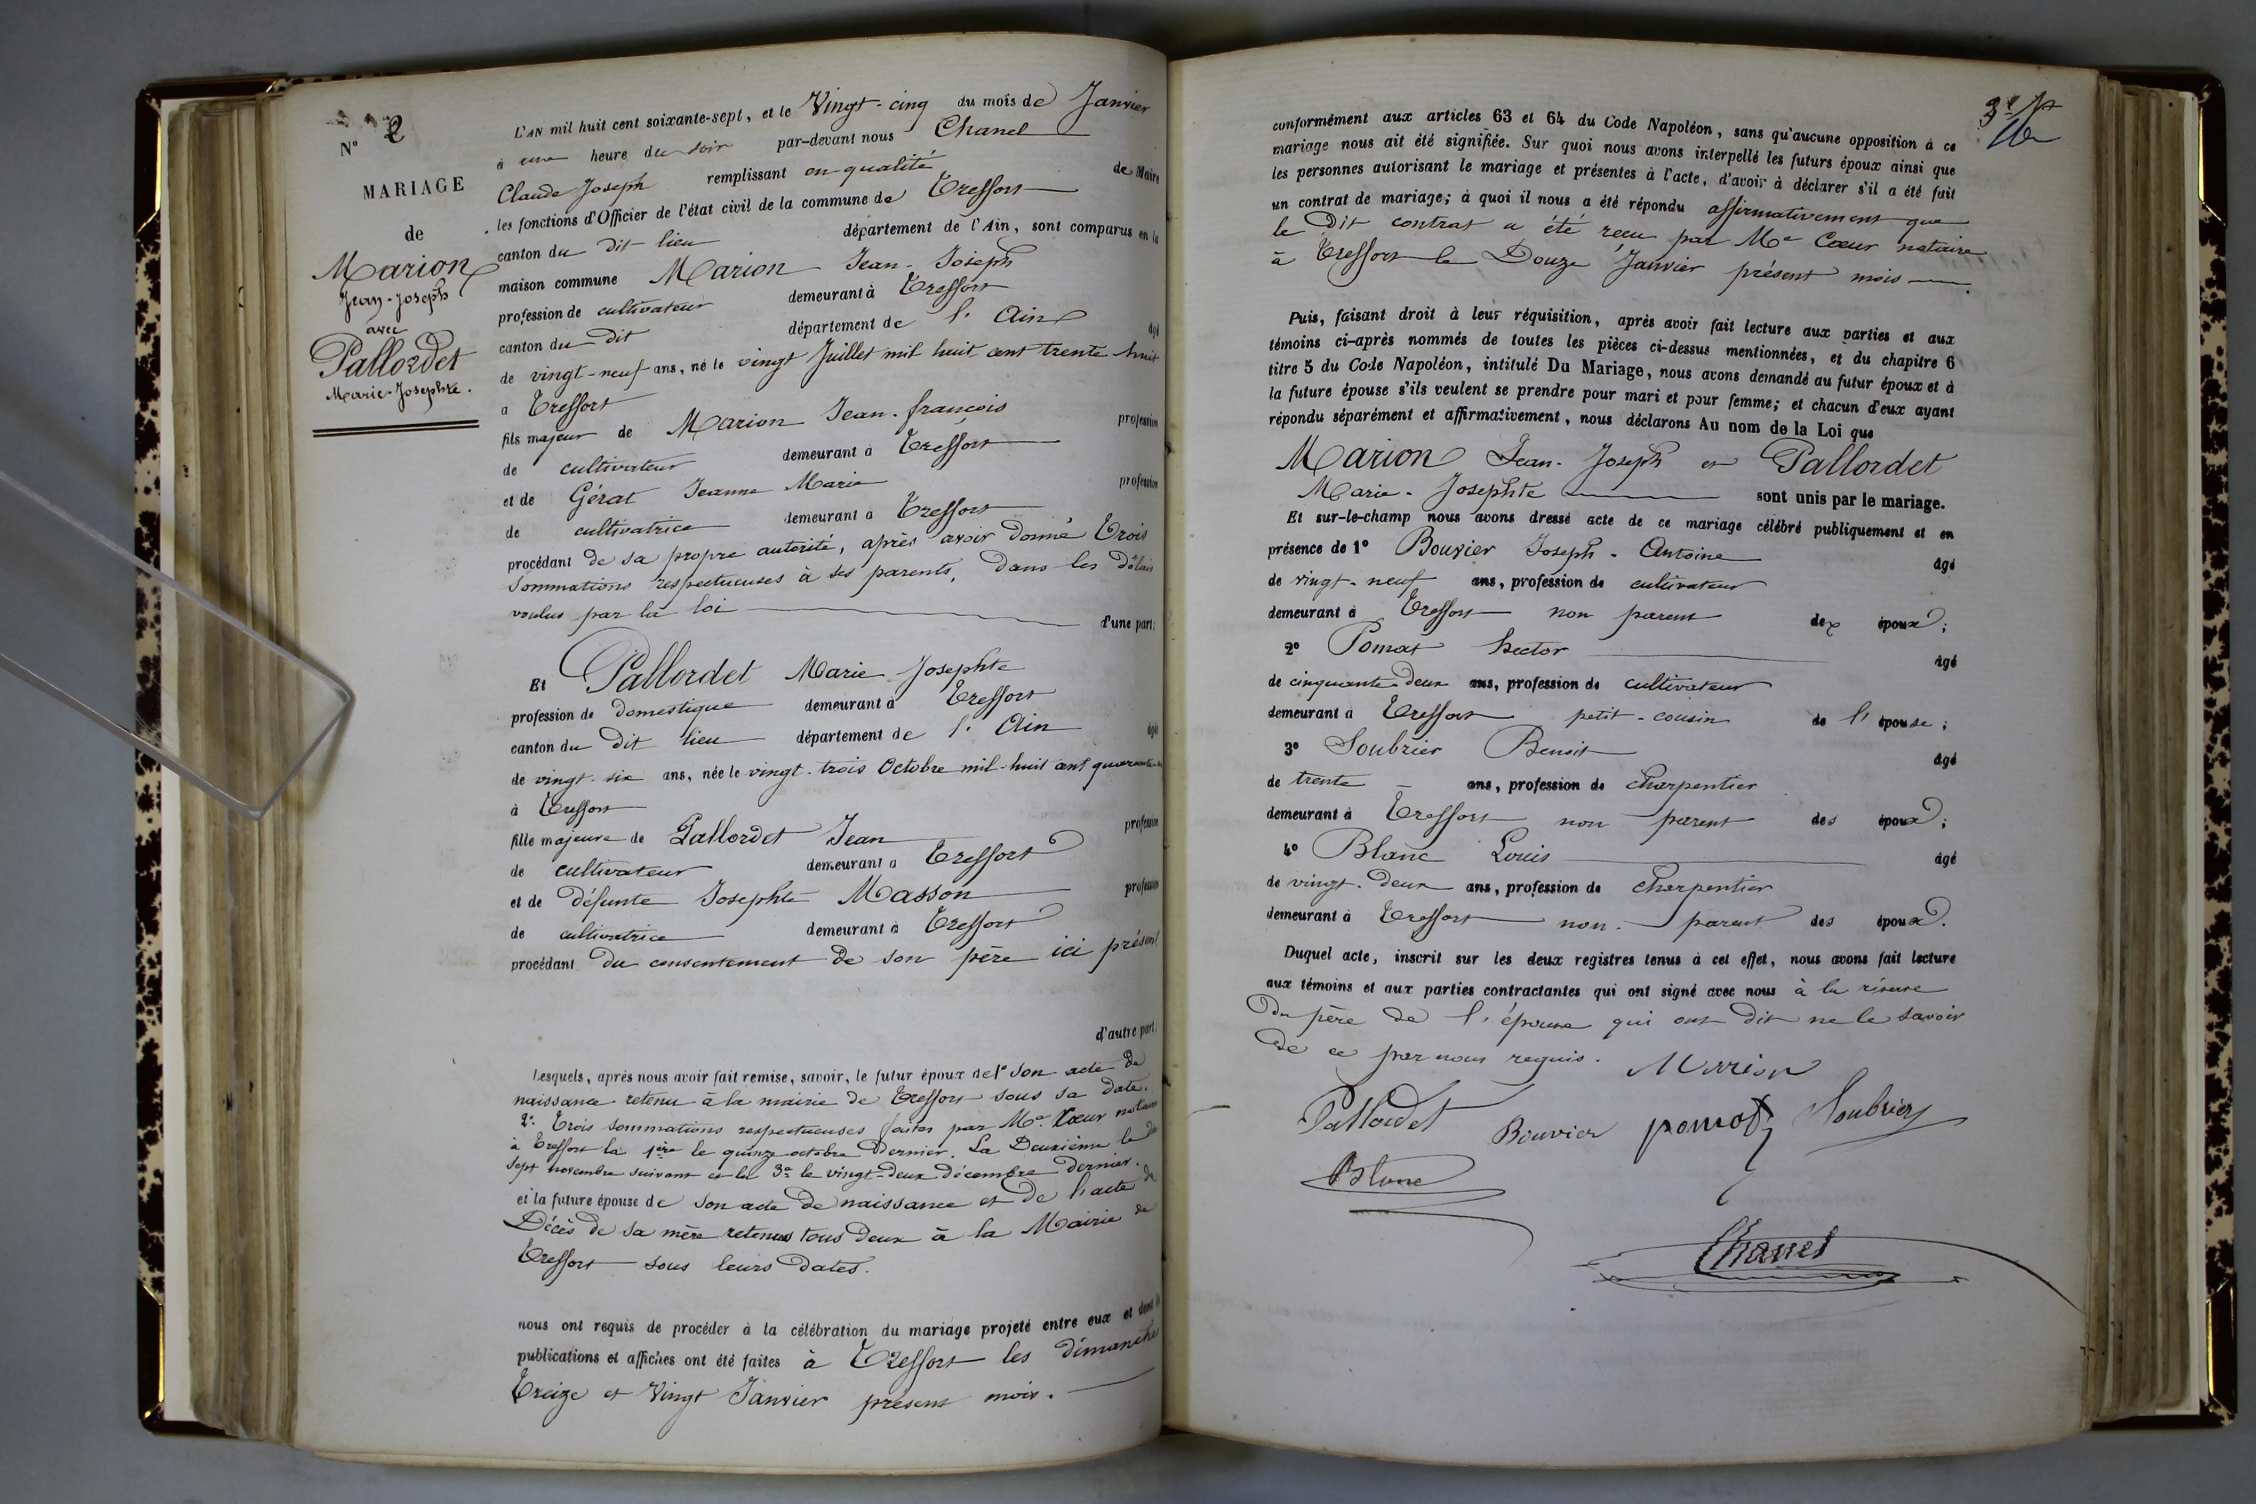 N° 2
MARIAGE
de
Marion
Jean-Joseph
avec
Pallordet
Marie-Josephte.
L'AN mil huit cent soixante-sept, et le Vingt-cinq du mois de Janvier
à une heure du soir par-devant nous Chanel
Claude Joseph remplissant en qualité de Maire
les fonctions d'Officier de l'état civil de la commune de Treffort
canton du dit lieu département de l'Ain, sont comparus en la
maison commune Marion Jean-Joseph
profession de cultivateur demeurant à Treffort
canton du dit département de l'Ain âgé
de vingt-neuf ans, né le vingt Juillet mil huit cent trente huit
à Treffort
fils majeur de Marion Jean-françois profession
de cultivateur demeurant à Treffort
et de Gérat Jeanne Marie profession
de cultivatrice demeurant à Treffort
procédant de sa propre autorité, après avoir donné Trois
Sommations respectueuses à ses parents, Dans les Délais
voulus par la loi d'une part;
Et Pallordet Marie Josephte
profession de domestique demeurant à Treffort
canton du dit lieu département de l'Ain âgée
de vingt-six ans, née le vingt-trois Octobre mil-huit cent quarante
à Treffort
fille majeure de Pallordet Jean profession
de cultivateur demeurant à Treffort
et de défunte Josephte Masson profession
de cultivatrice demeurant à Treffort
procédant du consentement de son père ici présent
d'autre part.
Lesquels, après nous avoir fait remise, savoir, le futur époux de 1° son acte de
naissance retenu à la mairie de Treffort sous sa date.
2° Trois sommations respectueuses faites par Me Cœur notaire
à Treffort la 1ère le quinze octobre Dernier. La Deuxième le dix
sept novembre suivant et la 3e le vingt-deux décembre dernier.
et la future épouse de son acte de naissance et de l'acte de
Décès de sa mère retenus tous deux à la Mairie de
Treffort sous leurs dates.
nous ont requis de procéder à la célébration du mariage projeté entre eux et dont les
publications et affiches ont été faites à Treffort les dimanches
Treize et Vingt Janvier présent mois.
conformément aux articles 63 et 64 du Code Napoléon, sans qu'aucune opposition à ce
mariage nous ait été signifiée. Sur quoi nous avons interpellé les futurs époux ainsi que
les personnes autorisant le mariage et présentes à l'acte, d'avoir à déclarer s'il a été fait
un contrat de mariage; à quoi il nous a été répondu affirmativement que
le Dit contrat a été reçu par Me Cœur notaire
à Treffort le Douze Janvier présent mois
Puis, faisant droit à leur réquisition, après avoir fait lecture aux parties et aux
témoins ci-après nommés de toutes les pièces ci-dessus mentionnées, et du chapitre 6
titre 5 du Code Napoléon, intitulé Du Mariage, nous avons demandé au futur époux et à
la future épouse s'ils veulent se prendre pour mari et pour femme; et chacun d'eux ayant
répondu séparément et affirmativement, nous déclarons Au nom de la Loi que
Marion Jean-Joseph et Pallordet
Marie-Josephte sont unis par le mariage.
Et sur-le-champ nous avons dressé acte de ce mariage célébré publiquement et en
présence de 1° Bouvier Joseph-Antoine âgé
de vingt-neuf ans, profession de cultivateur
demeurant à Treffort non parent des époux;
2° Pomat hector âgé
de cinquante-deux ans, profession de cultivateur
demeurant à Treffort petit-cousin de l'épouse;
3° Soubrier Benoit âgé
de trente ans, profession de charpentier
demeurant à Treffort non parent des époux;
4° Blanc Louis âgé
de vingt-deux ans, profession de charpentier
demeurant à Treffort non-parent des époux.
Duquel acte, inscrit sur les deux registres tenus à cet effet, nous avons fait lecture
aux témoins et aux parties contractantes qui ont signé avec nous à la réserve
Du père de l'épouse qui ont dit ne le savoir
de ce par nous requis. Marion
Pallordet Bouvier pomat Soubrier
Blanc
Chanel